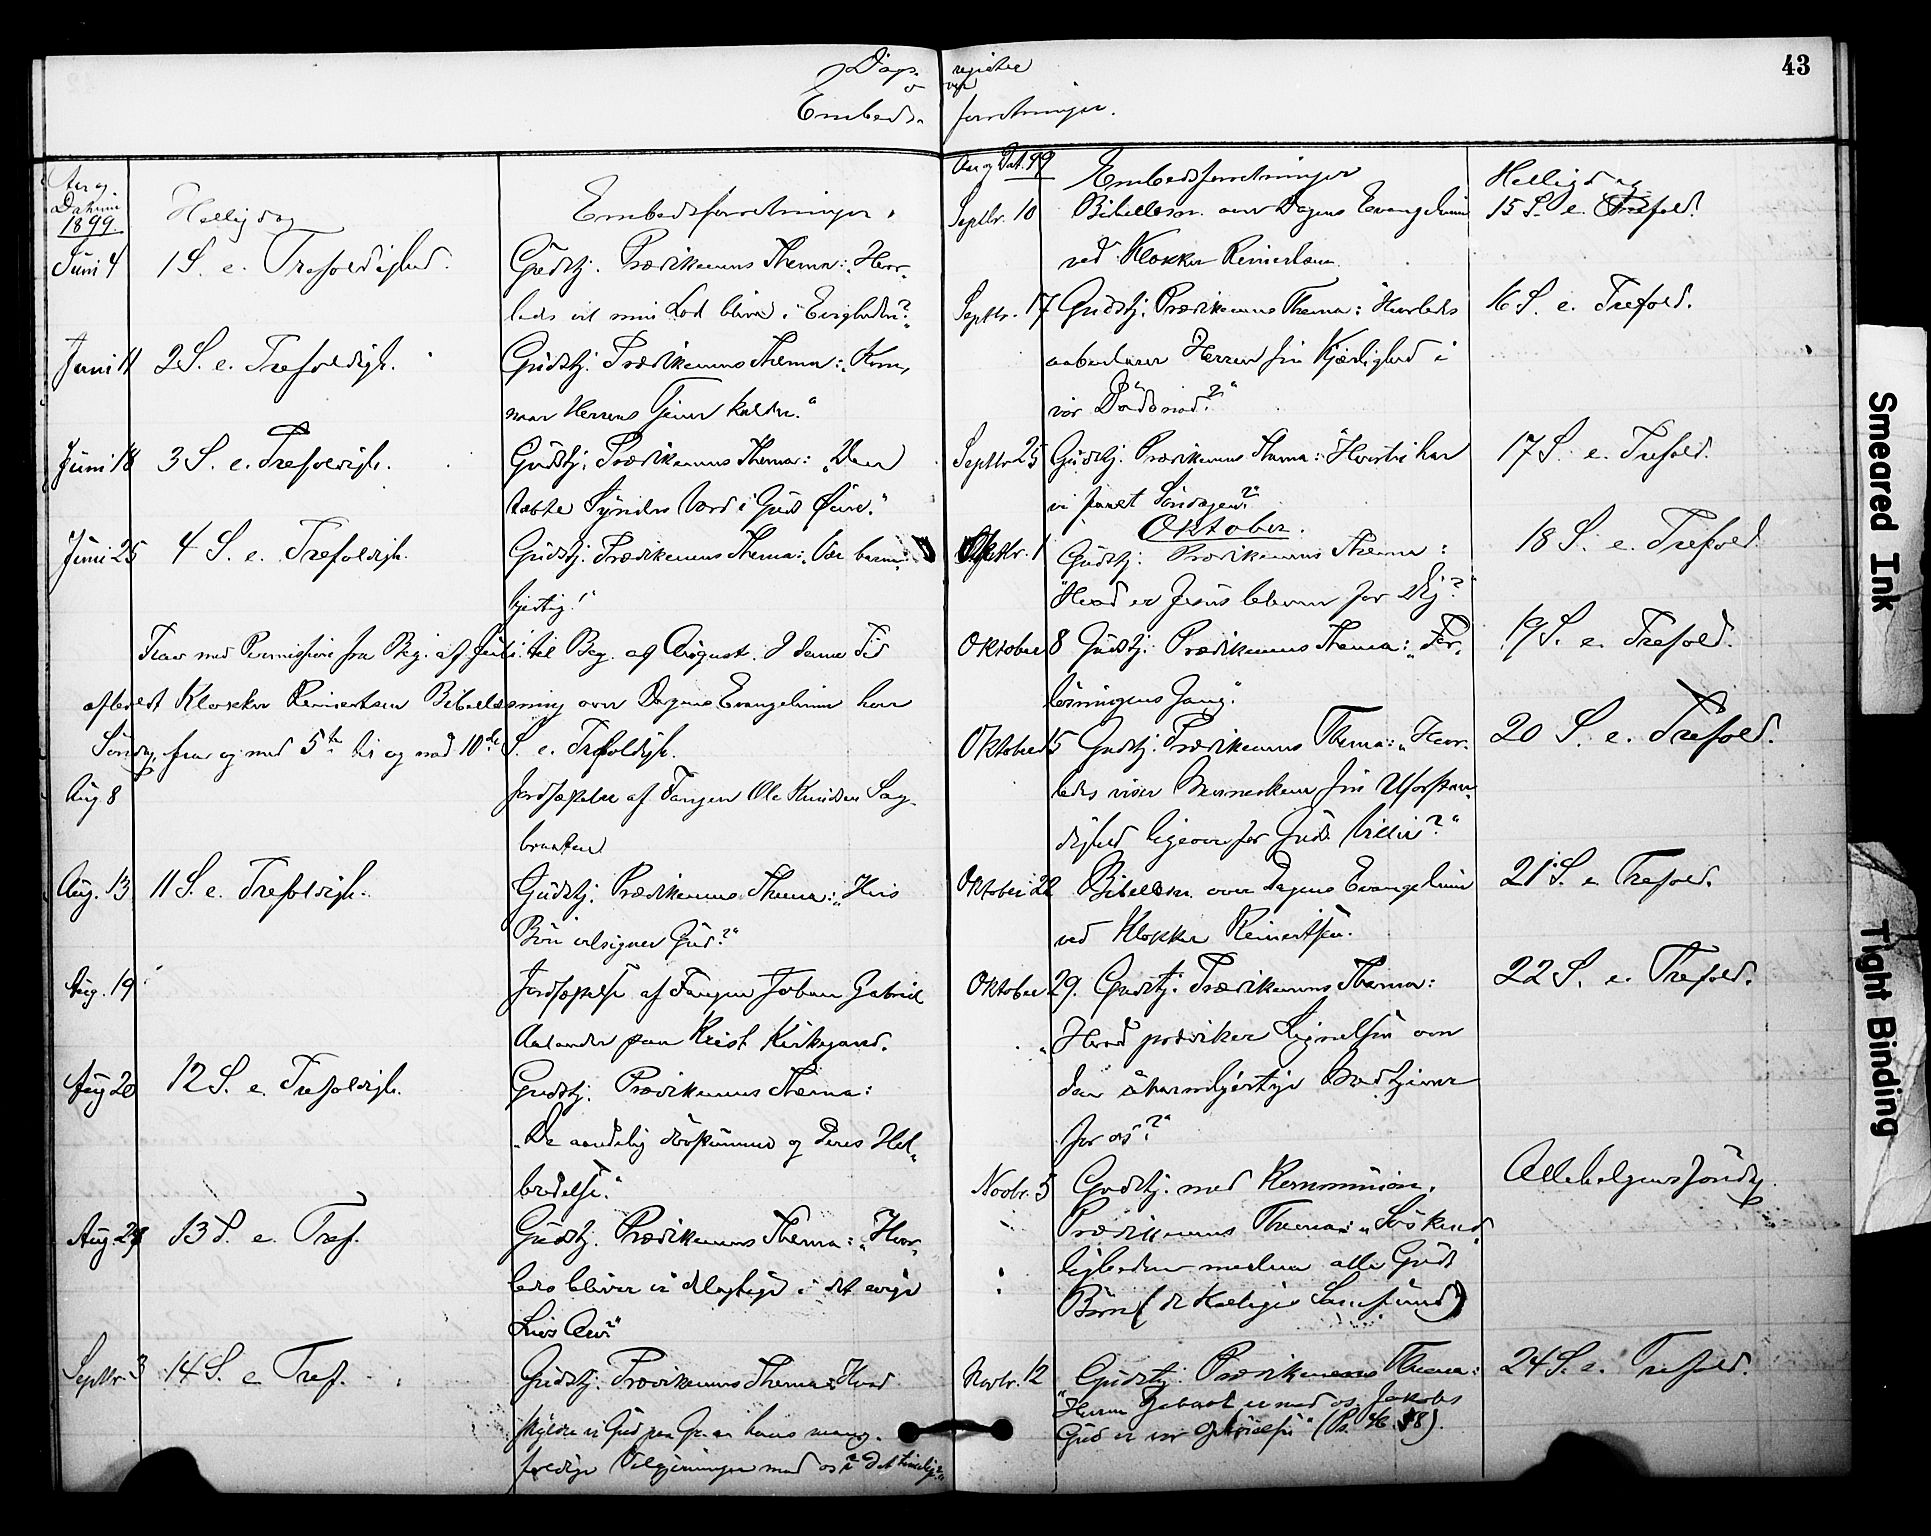 Dags-
o
Embeds-
Aar og
Datum
1899
Helligdag
Embedsforretninger.
Juni 4
1 S. e. Trefoldighed.
Gudstj. Prædikenens Thema: „Hvor-
ledes vil min Lod blive i Evigheden?“
Juni 11
2 S. e. Trefoldigh.
Gudstj. Prædikenens Thema: „Kom,
naar Herrens Tjener kalder.“
Juni 18
3 S. e. Trefoldigh.
Gudstj. Prædikenens Thema: „Den
tabte Synders Værd i Guds Øine.“
Juni 25
4 S. e. Trefoldigh.
Gudstj. Prædikenens Thema: „Vær barm-
hjertig!“
Frav. med Permission fra Beg. af Juli til Beg. af August. I denne Tid
afholdt Klokker Reinertsen Bibellæsning over Dagens Evangelium hver
Søndag, fra og med 5te til og med 10de S. e. Trefoldigh.
Aug. 8
Jordfæstelse af Fangen Ole Knudsen Sag-
braaten
Aug. 13
11 S. e. Trefoldigh.
Gudstj. Prædikenens Thema: „Hvis
Bøn velsigner Gud?“
Aug. 19
Jordfæstelse af Fangen Johan Gabriel
paa Krist Kirkegaard.
Aug 20
12 S. e. Trefoldigh.
Gudstj. Prædikenens Thema:
„De aandelig døvstumme og deres Hel-
bredelse.“
Aug. 27
13 S. e. Tref.
Gudstj. Prædikenens Thema: „Hvor-
ledes bliver vi delagtige i det evige
Livs Arv?“
Septbr. 3
14 S. e. Tref.
Gudstj. Prædikenens Thema: Hvad
skylder vi Gud paa Gr. av hans mang-
foldige Velgjerninger mod os i det timelige?“
43
register
over
forretninger.
Aar og Dat. 99
Embedsforretninger
Helligdag
Septbr. 10
Bibellæsn. over Dagens Evangelium
15 S. e. Trefold.
ved Klokker Reinertsen
Septbr. 17
Gudstj. Prædikenens Thema: „Hvorledes
16 S. e. Trefold.
aabenbarer Herren sin Kjærlighed i
vor Dødsnød?“
Septbr 25
Gudstj. Prædikenens Thema: „Hvorfor har
17 S. e. Trefold.
vi faaet Søndagen?“
Oktober.
Oktbr. 1
Gudstj. Prædikenens Thema:
18 S. e. Trefold.
„Hvad er Jesus bleven for Dig?“
Oktober 8
Gudstj. Prædikenens Thema: „For-
19 S. e. Trefold.
løsningens Gang.“
Oktober 15
Gudstj. Prædikenens Thema: „Hvor-
20 S. e. Trefold.
ledes viser Mennesket sin Uforstan-
dighed ligeoverfor Guds Villie?“
Oktober 22
Bibellæsn. over Dagens Evangelium
21 S. e Trefold.
ved Klokker Reinertsen.
Oktober 29.
Gudstj. Prædikenens Thema:
22 S. e. Trefold.
„Hvad prædiker Lignelsen om
den ubarmhjertige Medtjener
for os?“
Novbr. 5
Gudstj. med Kommunion.
Allehelgenssøndag.
Prædikenens Thema: „Søskend-
ligheden mellem alle Guds
Børn (de Helliges Samfund)
Novbr. 12
Gudstj. Prædikenens Thema:
24 S. e. Trefold.
„Herren Zebaot er med os, Jakobs
Gud er vor “ (Ps. 46 8).
Smeared Ink
Tight Binding